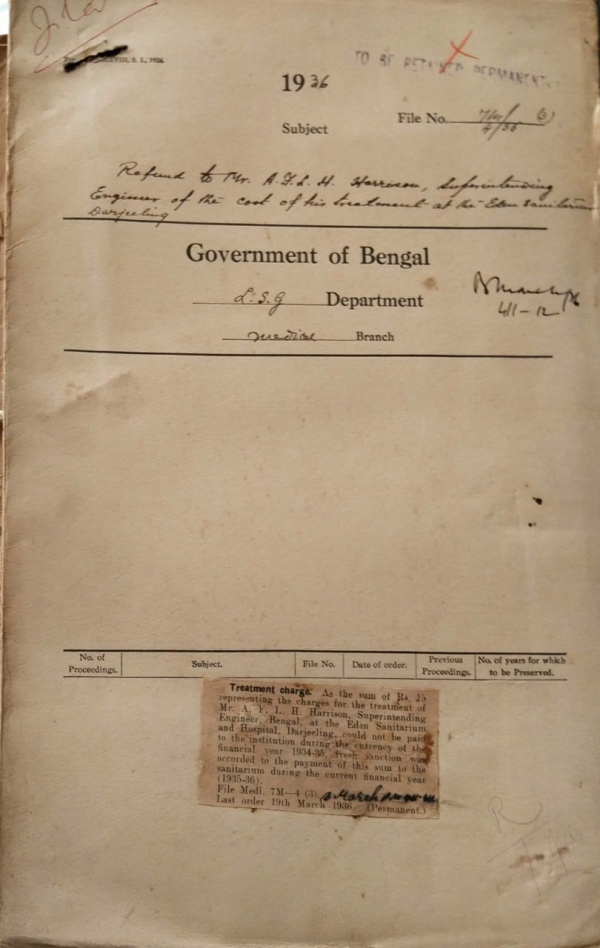 TO BE RETAINED PERMANENT
1936
File No. 7M/4/36 (3)
Subject
Refund to Mr. A. F. L. H. Harrison, Superintending
Engineer of the cost of his treatment at the Eden Sanitarium
Darjeeling
Government of Bengal
L. S. G Department
411-12
Medical Branch
No. of Proceedings. Subject. File No. Date of order. Previous Proceedings. No. of years for which to be Preserved.
Treatment charge. As the sum of Rs. 25
representing the charges for the treatment of
Mr. A. F. L. H. Harrison, Superintending
Engineer, Bengal, at the Eden Sanitarium
and Hospital, Darjeeling, could not be paid
to the institution during the currency of the
financial year 1934-35, fresh sanction was
accorded to the payment of this sum to the
sanitarium during the current financial year
(1935-36).
File Medl. 7M—4 (3).
Last order 19th March 1936. (Permanent.)
R